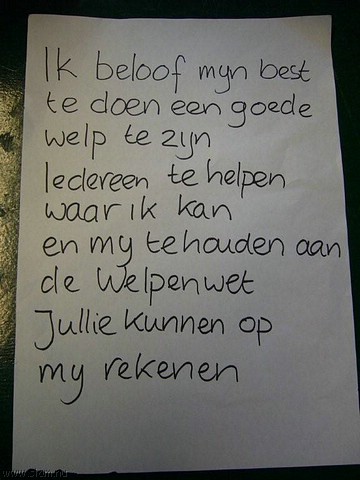 Ik beloof myn best
te doen een goede
welp te zijn
Iedereen te helpen
waar ik kan
en my te houden aan
de Welpenwet
Jullie kunnen op
my rekenen